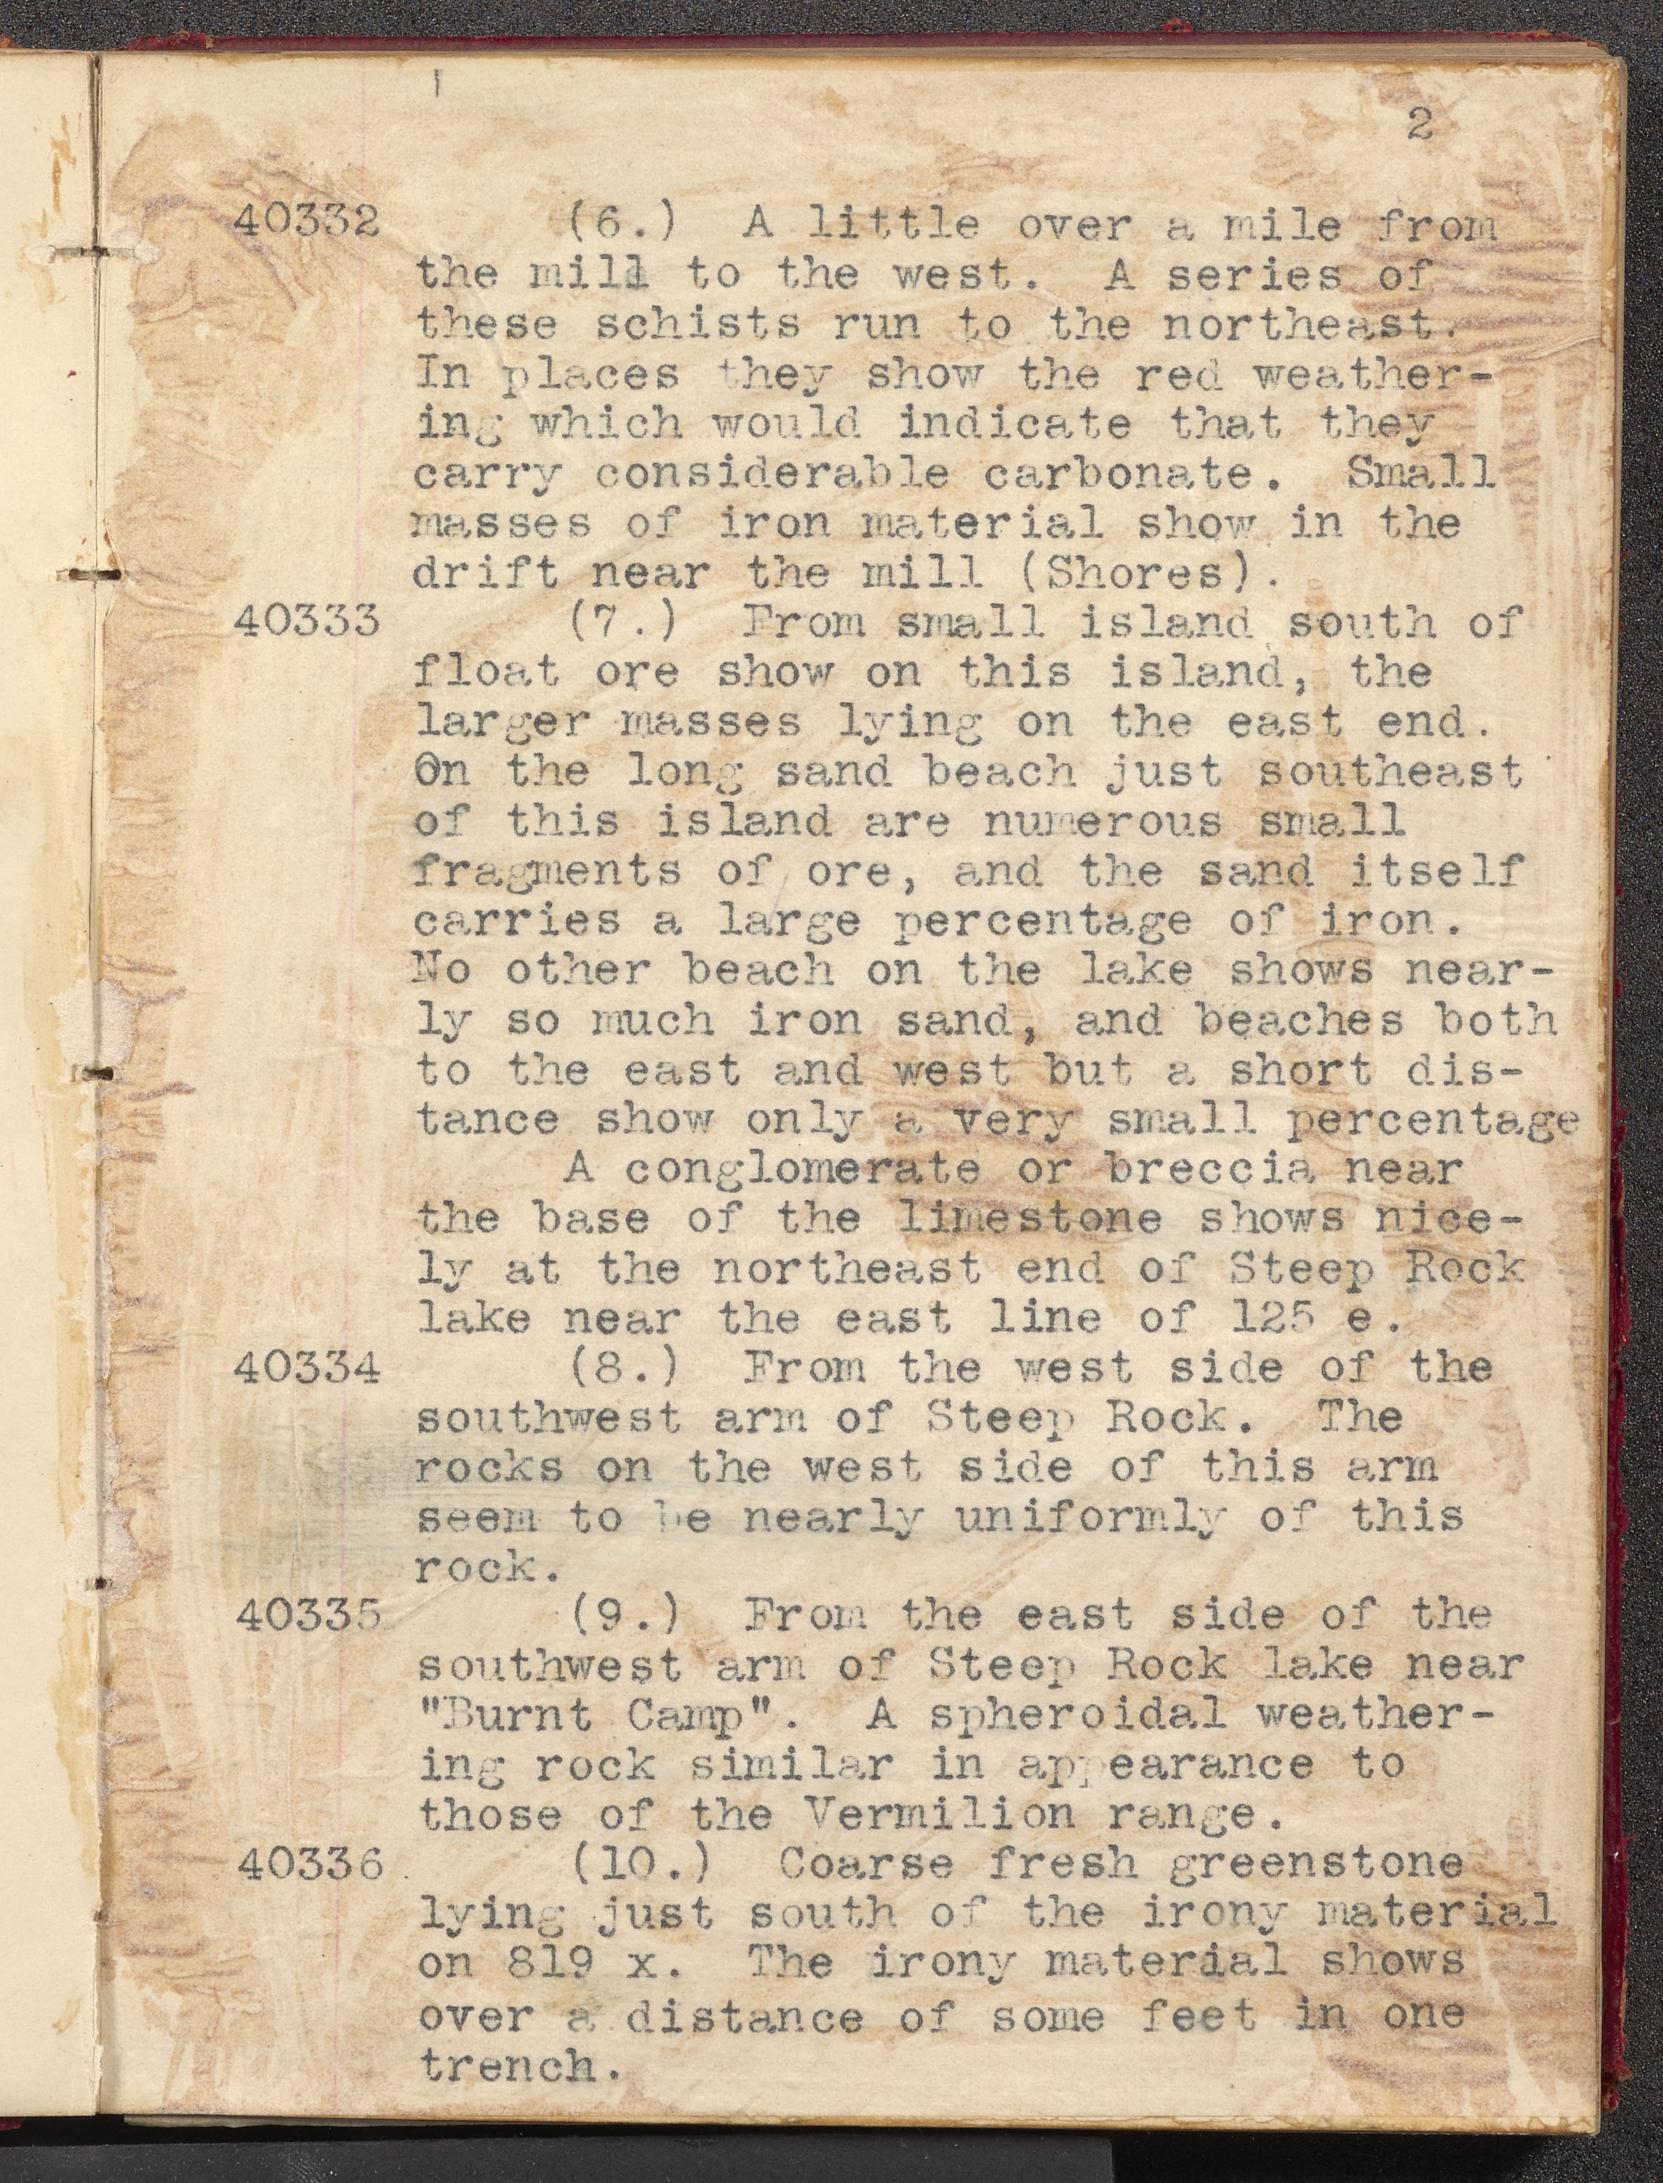 2
40332 (6.) A little over a mile from
the mill to the west. A series of
these schists run to the northeast.
In places they show the red weather-
ing which would indicate that they
carry considerable carbonate. Small
masses of iron material show in the
drift near the mill (Shores).
40333 (7.) From small island south of
float ore show on this island, the
larger masses lying on the east end.
On the long sand beach just southeast
of this island are numerous small
fragments of ore, and the sand itself
carries a large percentage of iron.
No other beach on the lake shows near-
ly so much iron sand, and beaches both
to the east and west but a short dis-
tance show only a very small percentage
A conglomerate or breccia near
the base of the limestone shows nice-
ly at the northeast end of Steep Rock
lake near the east line of 125 e.
40334 (8.) From the west side of the
southwest arm of Steep Rock. The
rocks on the west side of this arm
seem to be nearly uniformly of this
rock.
40335 (9.) From the east side of the
southwest arm of Steep Rock lake near
"Burnt Camp". A spheroidal weather-
ing rock similar in appearance to
those of the Vermilion range.
40336 (10.) Coarse fresh greenstone
lying just south of the irony material
on 819 x. The irony material shows
over a distance of some feet in one
trench.